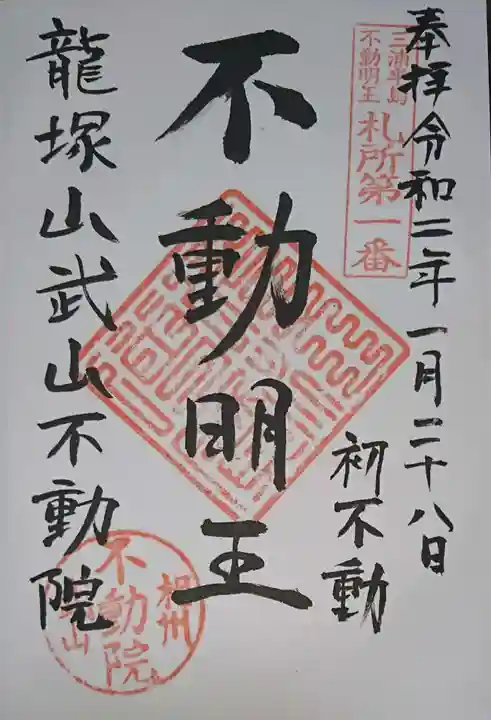 奉拝令和二年一月二十八日
三浦半島
不動明王
札所第一番
初不動
不動明王
龍塚山武山不動院
相州
不動院
山